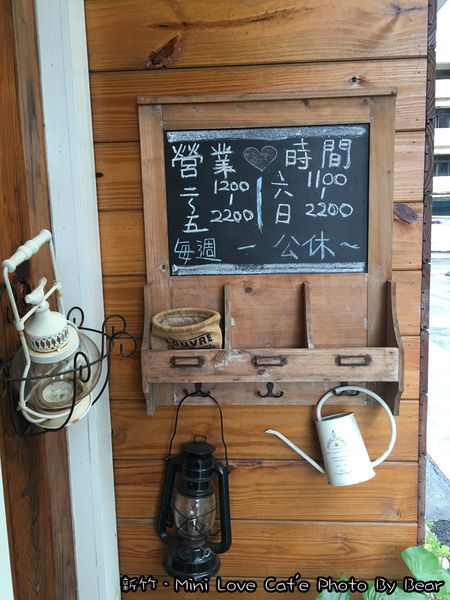 營業♡時間
二~五 1200-2200 | 六日 1100-2200
每週一公休~
LOUVRE
新竹・Mini Love Cafe Photo By Bear